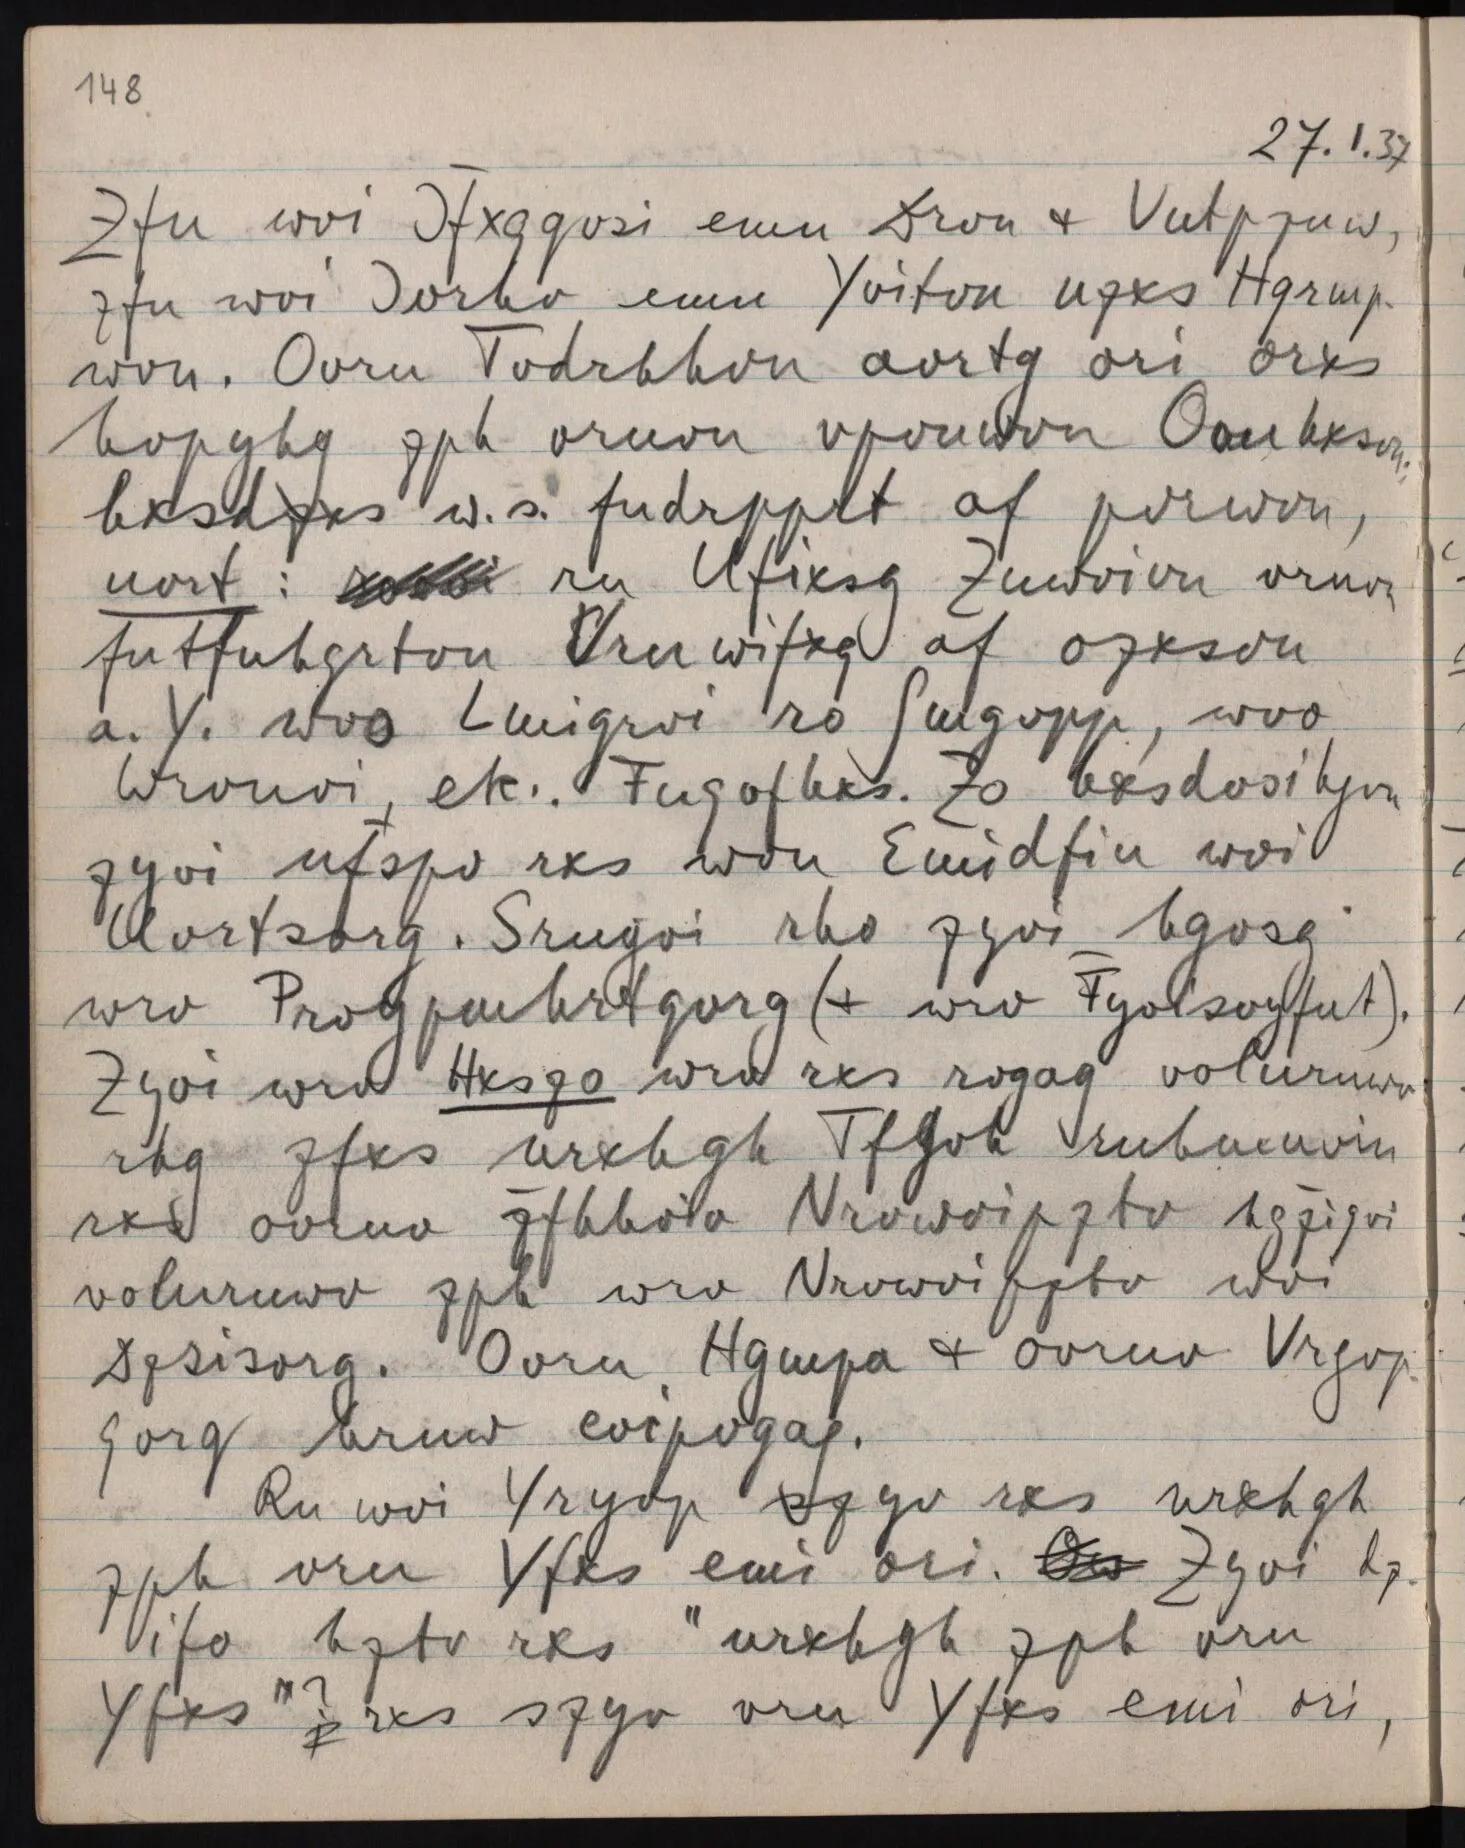 148
27.1.37
Zfu woi Jfxqqosi emn Dron & Vntpznw,
zfu woi Jorho emn Yoiton nzxs Hqrmp-
won. Oorn Todrhhon aortg ori orxs
hopyhg zph vrnon vponwon Oonhxson;
hxsdzxs w.s. fndrpprt af porwon,
uort : rn Ufixsg Znwoion vrnon
fntfnhgrton Vrnwifxq af ozxson
a.Y. woo Lmigroi ro Smgopp, woo
Wronoi, etc.. Fnqofhxs. Zo hxsdosihgon
zyoi ufspo rxs won Emidfiu woi
Uortsorg. Srngoi rso zyoi hgosg
wro Proypmhrtqorg (& wro Fyoisoyfnt).
Zyoi wro Hxszo wro rxs rogag volurnwo
rhg zfxs nrxhgh Tfgoh rnhmuoin
rxs oorno zfhhoio Nrowoipzto hgziqoi
volurnwo zph wro Nrowoipzto woi
Dzsisorg. Oorn Hgmpa & oorno Vrgop-
qorg hrnw eoipogag.
Rn woi Yryop szyo rxs nrxhgh
zph vrn Yfxs emi ori. Zyoi dz-
ifo hzto rxs "nrxhgh zph vrn
Yfxs"? rxs szyo vrn Yfxs emi ori,